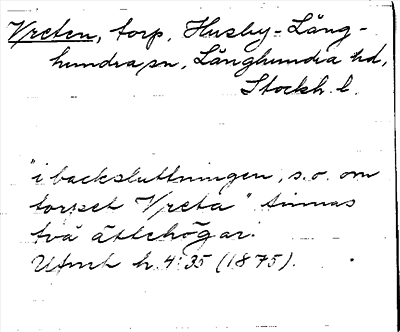 Vreten, torp, Husby-Lång-
hundra sn, Långhundra hd,
Stockh. l.
"i backsluttningen, s.o. om
torpet Vreta" finnas
två ättehögar.
h. 4: 35 (1875).